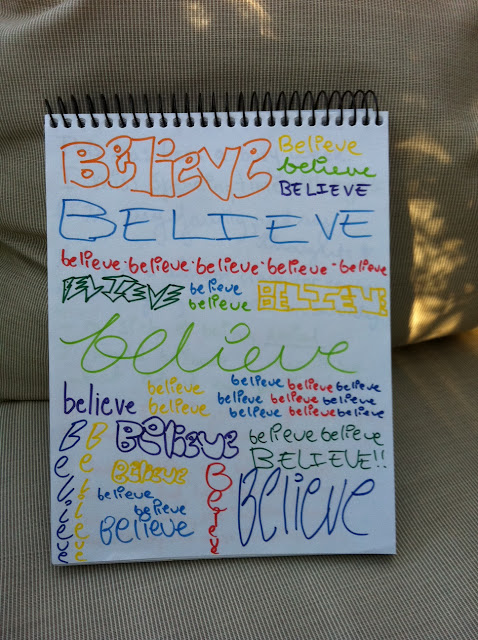 Believe
Believe
believe
BELIEVE
BELIEVE
believe · believe · believe · believe · believe
BELIEVE
believe
believe
BELIEVE!
believe
believe
believe
believe
believe believe believe
believe believe believe
believe believe believe
Believe
Believe
Believe
believe believe
BELIEVE!!
Believe
believe
believe
Believe
Believe